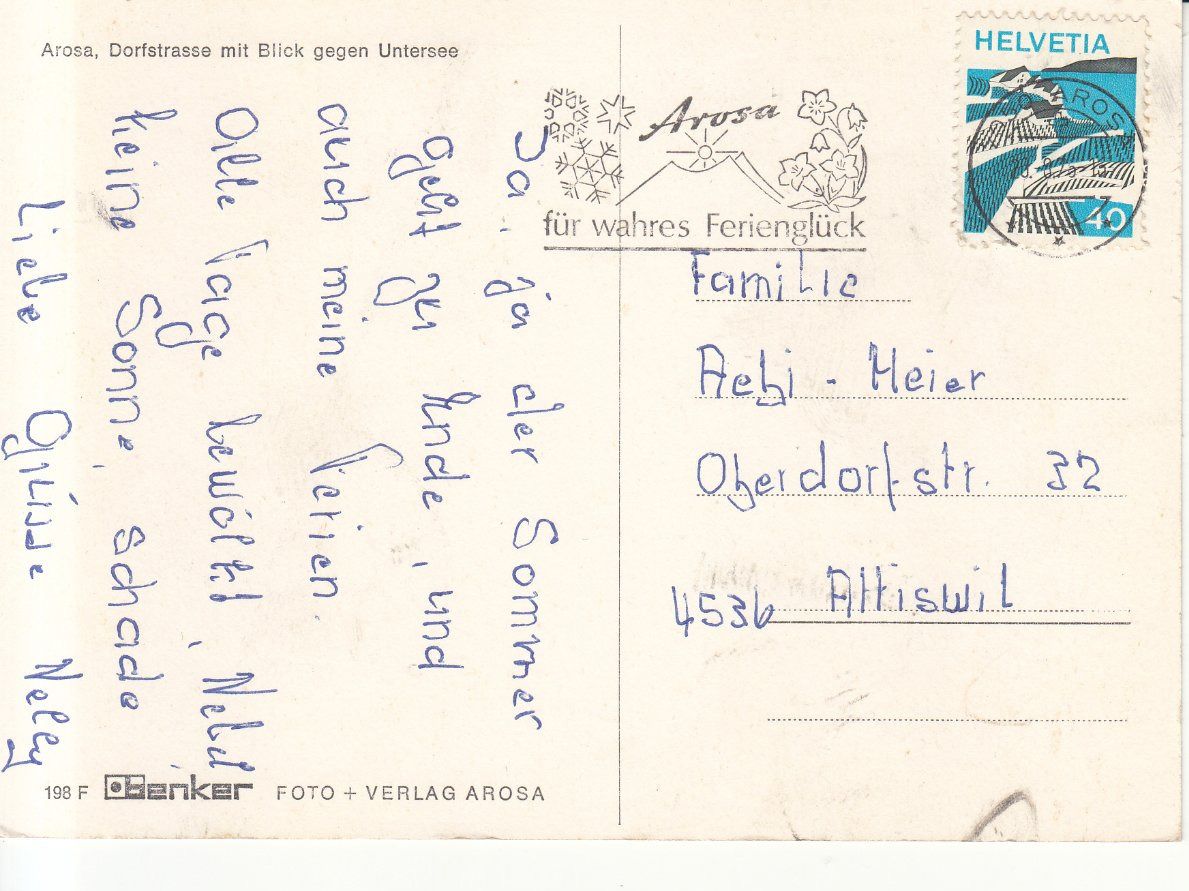 Arosa, Dorfstrasse mit Blick gegen Untersee
HELVETIA
40
AROSA
Arosa
für wahres Ferienglück
Ja, ja der Sommer
geht zu Ende, und
auch meine Ferien.
Alle Tage bewölkt, Nebel
keine Sonne, schade
Liebe Grüsse Nelly
Familie
Aebi - Meier
Oberdorfstr. 32
4536 Attiswil
198 F FOTO + VERLAG AROSA